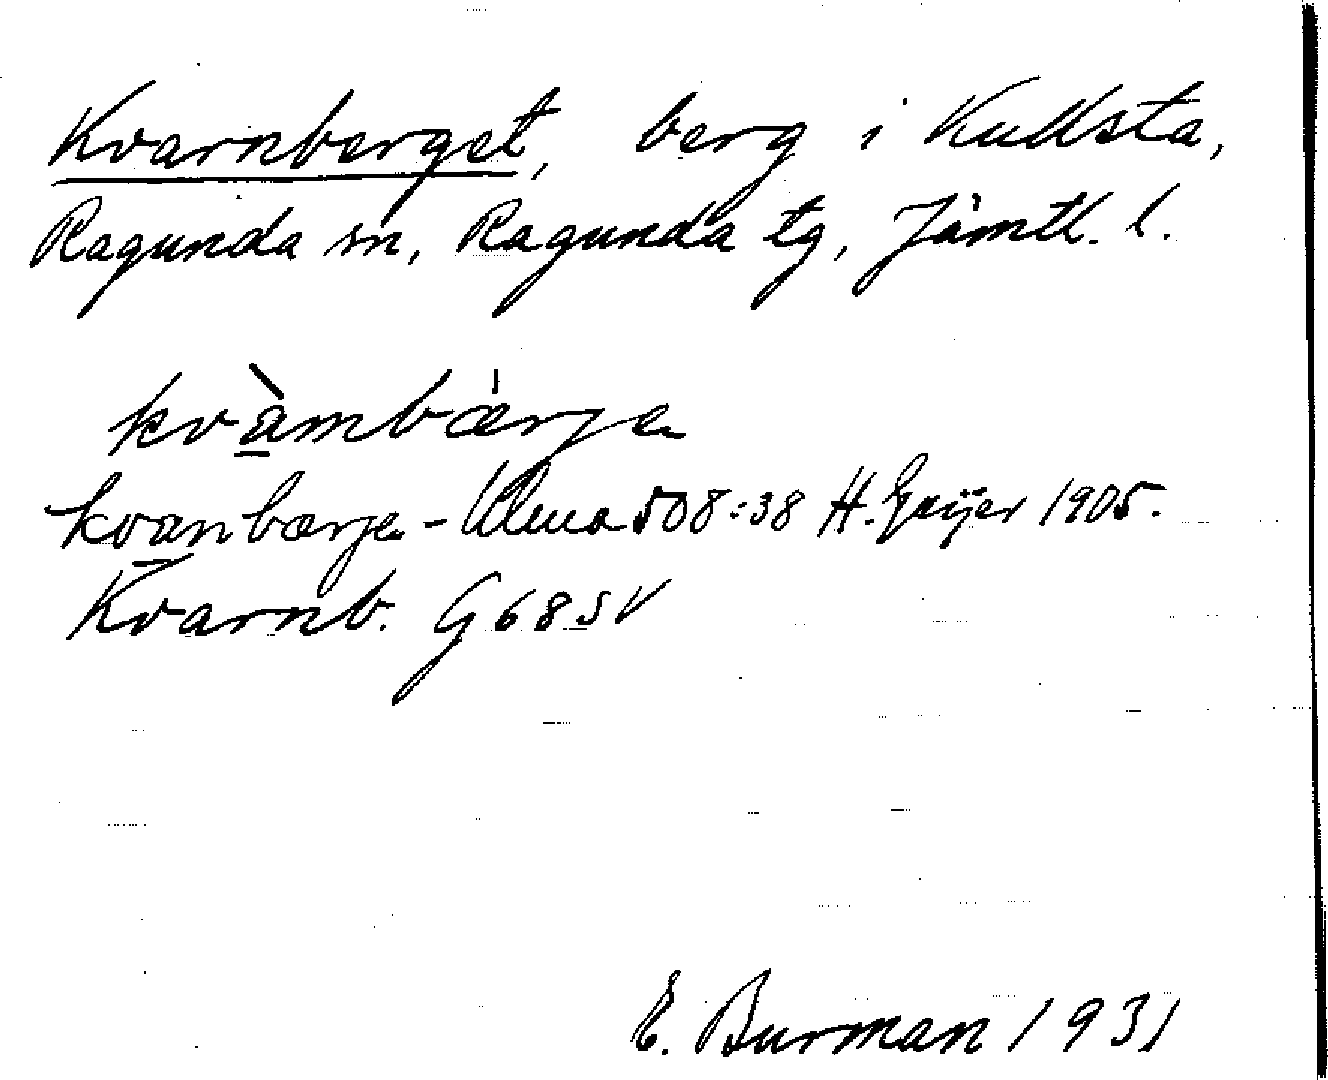 Kvarnberget, berg i Kullsta,
Ragunda sn, Ragunda tg, Jämtl. l.
kvàmbærje
kvanbærje - Ulma 508:38 H. Geijer 1905.
Kvarnb. G 68 SV
E. Burman 1931